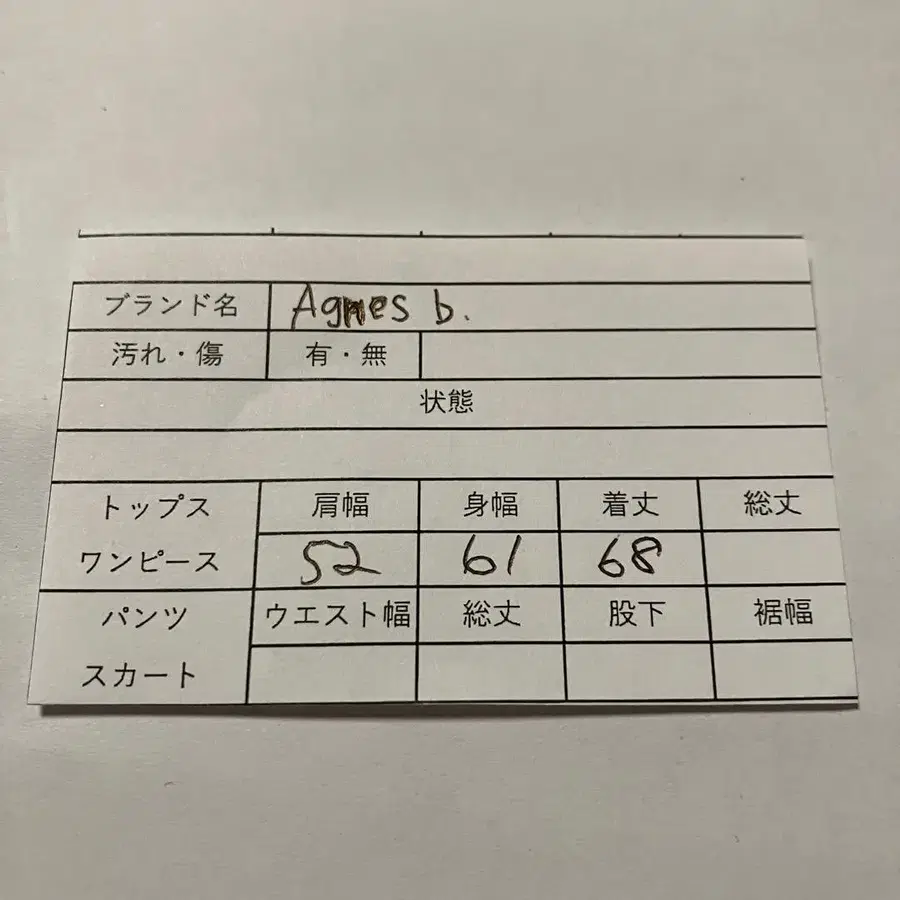 ブランド名 Agnes b.
汚れ・傷 有・無
状態
トップス 肩幅 身幅 着丈 総丈
ワンピース 52 61 68
パンツ ウエスト幅 総丈 股下 裾幅
スカート